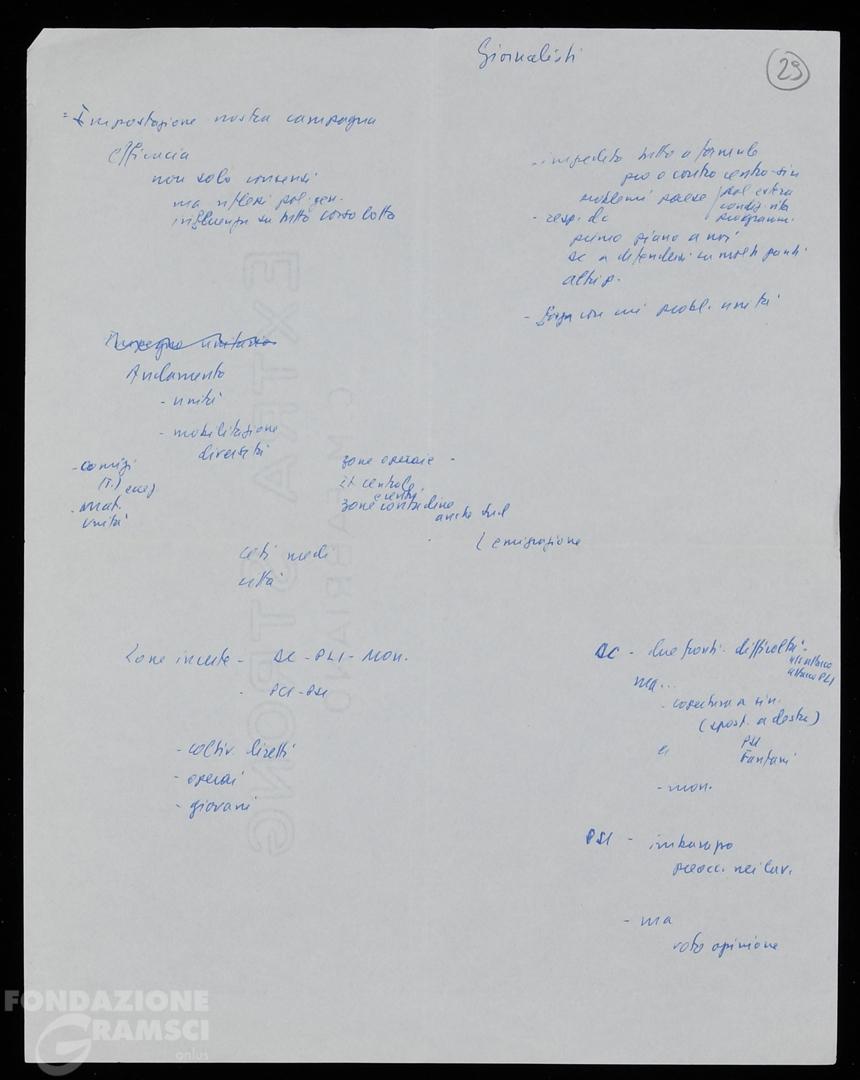 Giornalisti
29
= Impostazione nostra campagna
Efficacia
non solo consensi
ma riflessi pol. gen.
influenza su tutto corso lotta
- impedito tutto a formule
pro o contro centro-sin
problemi paese / pol. estera
programm.
- resp. dc
primo piano a noi
DC a difendersi su molti punti
altri p.
- probl. unità
Impegno unitario
Andamento
- unità
- mobilitazione
diversità
- comizi
(T.) ecc.
- mat.
unità
zone operaie -
It centrale
zone contadine
anche Sud
L emigrazione
ceti medi
città
Zone incerte - DC - PLI - Mon.
- PCI - PSI
- coltiv. diretti
- operai
- giovani
DC - due fronti. difficoltà
attacco PLI
ma...
- copertura a sin.
(spost. a destra)
PSI
Fanfani
- mon.
PSI - imbarazzo
preocc. nei lav.
- ma
voto opinione
EXTRA STRONG
C M FABRIANO
FONDAZIONE
GRAMSCI
onlus